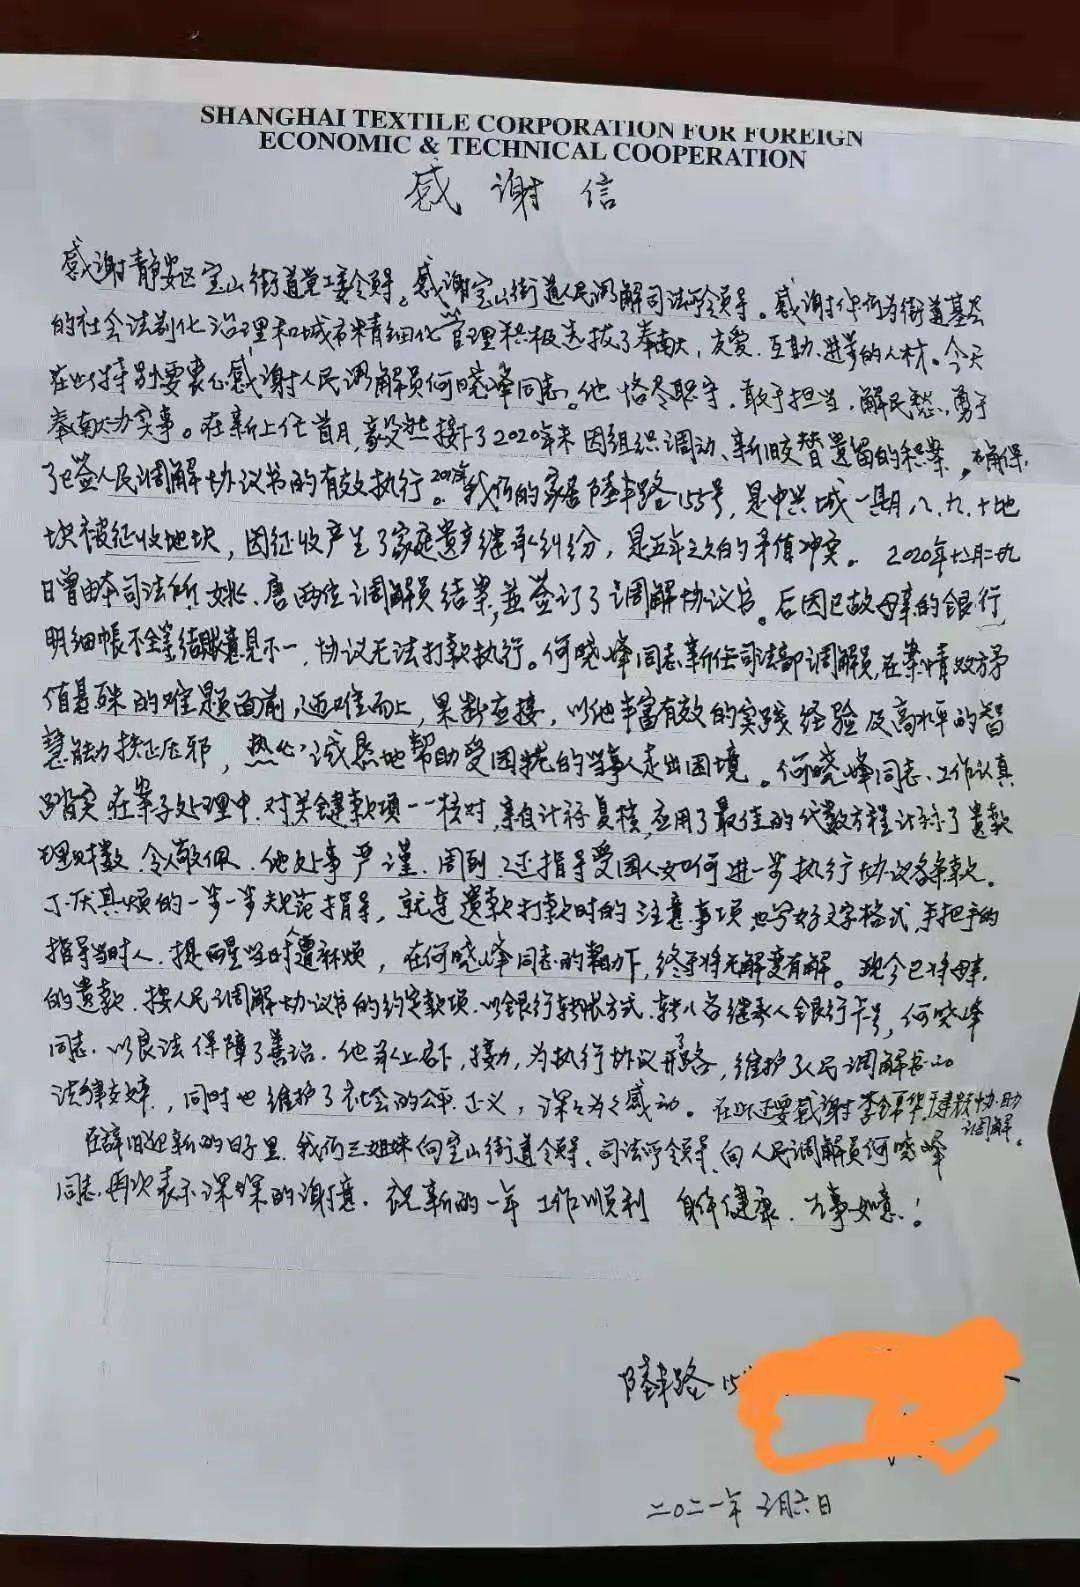 SHANGHAI TEXTILE CORPORATION FOR FOREIGN
ECONOMIC & TECHNICAL COOPERATION
感 谢 信
感谢静安区宝山街道党工委领导。感谢宝山街道人民调解司法所领导。感谢你们为街道基层
的社会法制化治理和城市精细化管理积极选拔了奉献、友爱、互助、进步的人材。今天
在此特别要衷心感谢人民调解员何晓峰同志。他恪尽职守,敢于担当,解民愁,勇于
奉献办实事。在新上任首月,毅然接下了2020年末因组织调动、新旧交替遗留的积案。确保
了已签人民调解协议书的有效执行。我们的家居陆丰路155号,是中兴城一期八、九、十地
块被征收地块,因征收产生了家庭遗产继承纠纷,是五年之久的矛盾冲突。2020年十二月二九
日曾由本司法所姚、唐两位调解员结案,并签订了调解协议书。后因已故母亲的银行
明细帐不全等结账意见不一,协议无法打款执行。何晓峰同志新任司法部调解员,在案情双方矛
值悬殊的难题面前,迎难而上,果断应接,以他丰富有效的实践经验及高水平的智
慧能力扶正压邪,热心诚恳地帮助受困扰的当事人走出困境。何晓峰同志、工作认真
踏实在案子处理中,对关键款项一一核对,亲自计算复核,应用了最佳的代数方程计算了遗款
理财数,令人敬佩。他处事严谨、周到,还指导受困人如何进一步执行协议各条款。
不厌其烦的一步一步规范指导,就连遗款打款时的注意事项,也写好文字格式,手把手的
指导当时人,提醒当时遭麻烦,在何晓峰同志的帮助下,终于将无解变有解。现今已将母亲
的遗款,按人民调解协议书的约定款项,以银行转帐方式,转入各继承人银行卡号,何晓峰
同志,以良法保障了善治,他承上启下,接力,为执行协议开了路,维护了人民调解书的
法律支撑,同时也维护了社会的公平正义,深深为之感动。在此还要感谢李 华、 协助
调解。
在辞旧迎新的日子里,我们三姐妹向宝山街道领导、司法所领导、向人民调解员何晓峰
同志,再次表示深深的谢意。祝新的一年工作顺利 身体健康、万事如意!
陆丰路 15
二〇二一年 三月六日